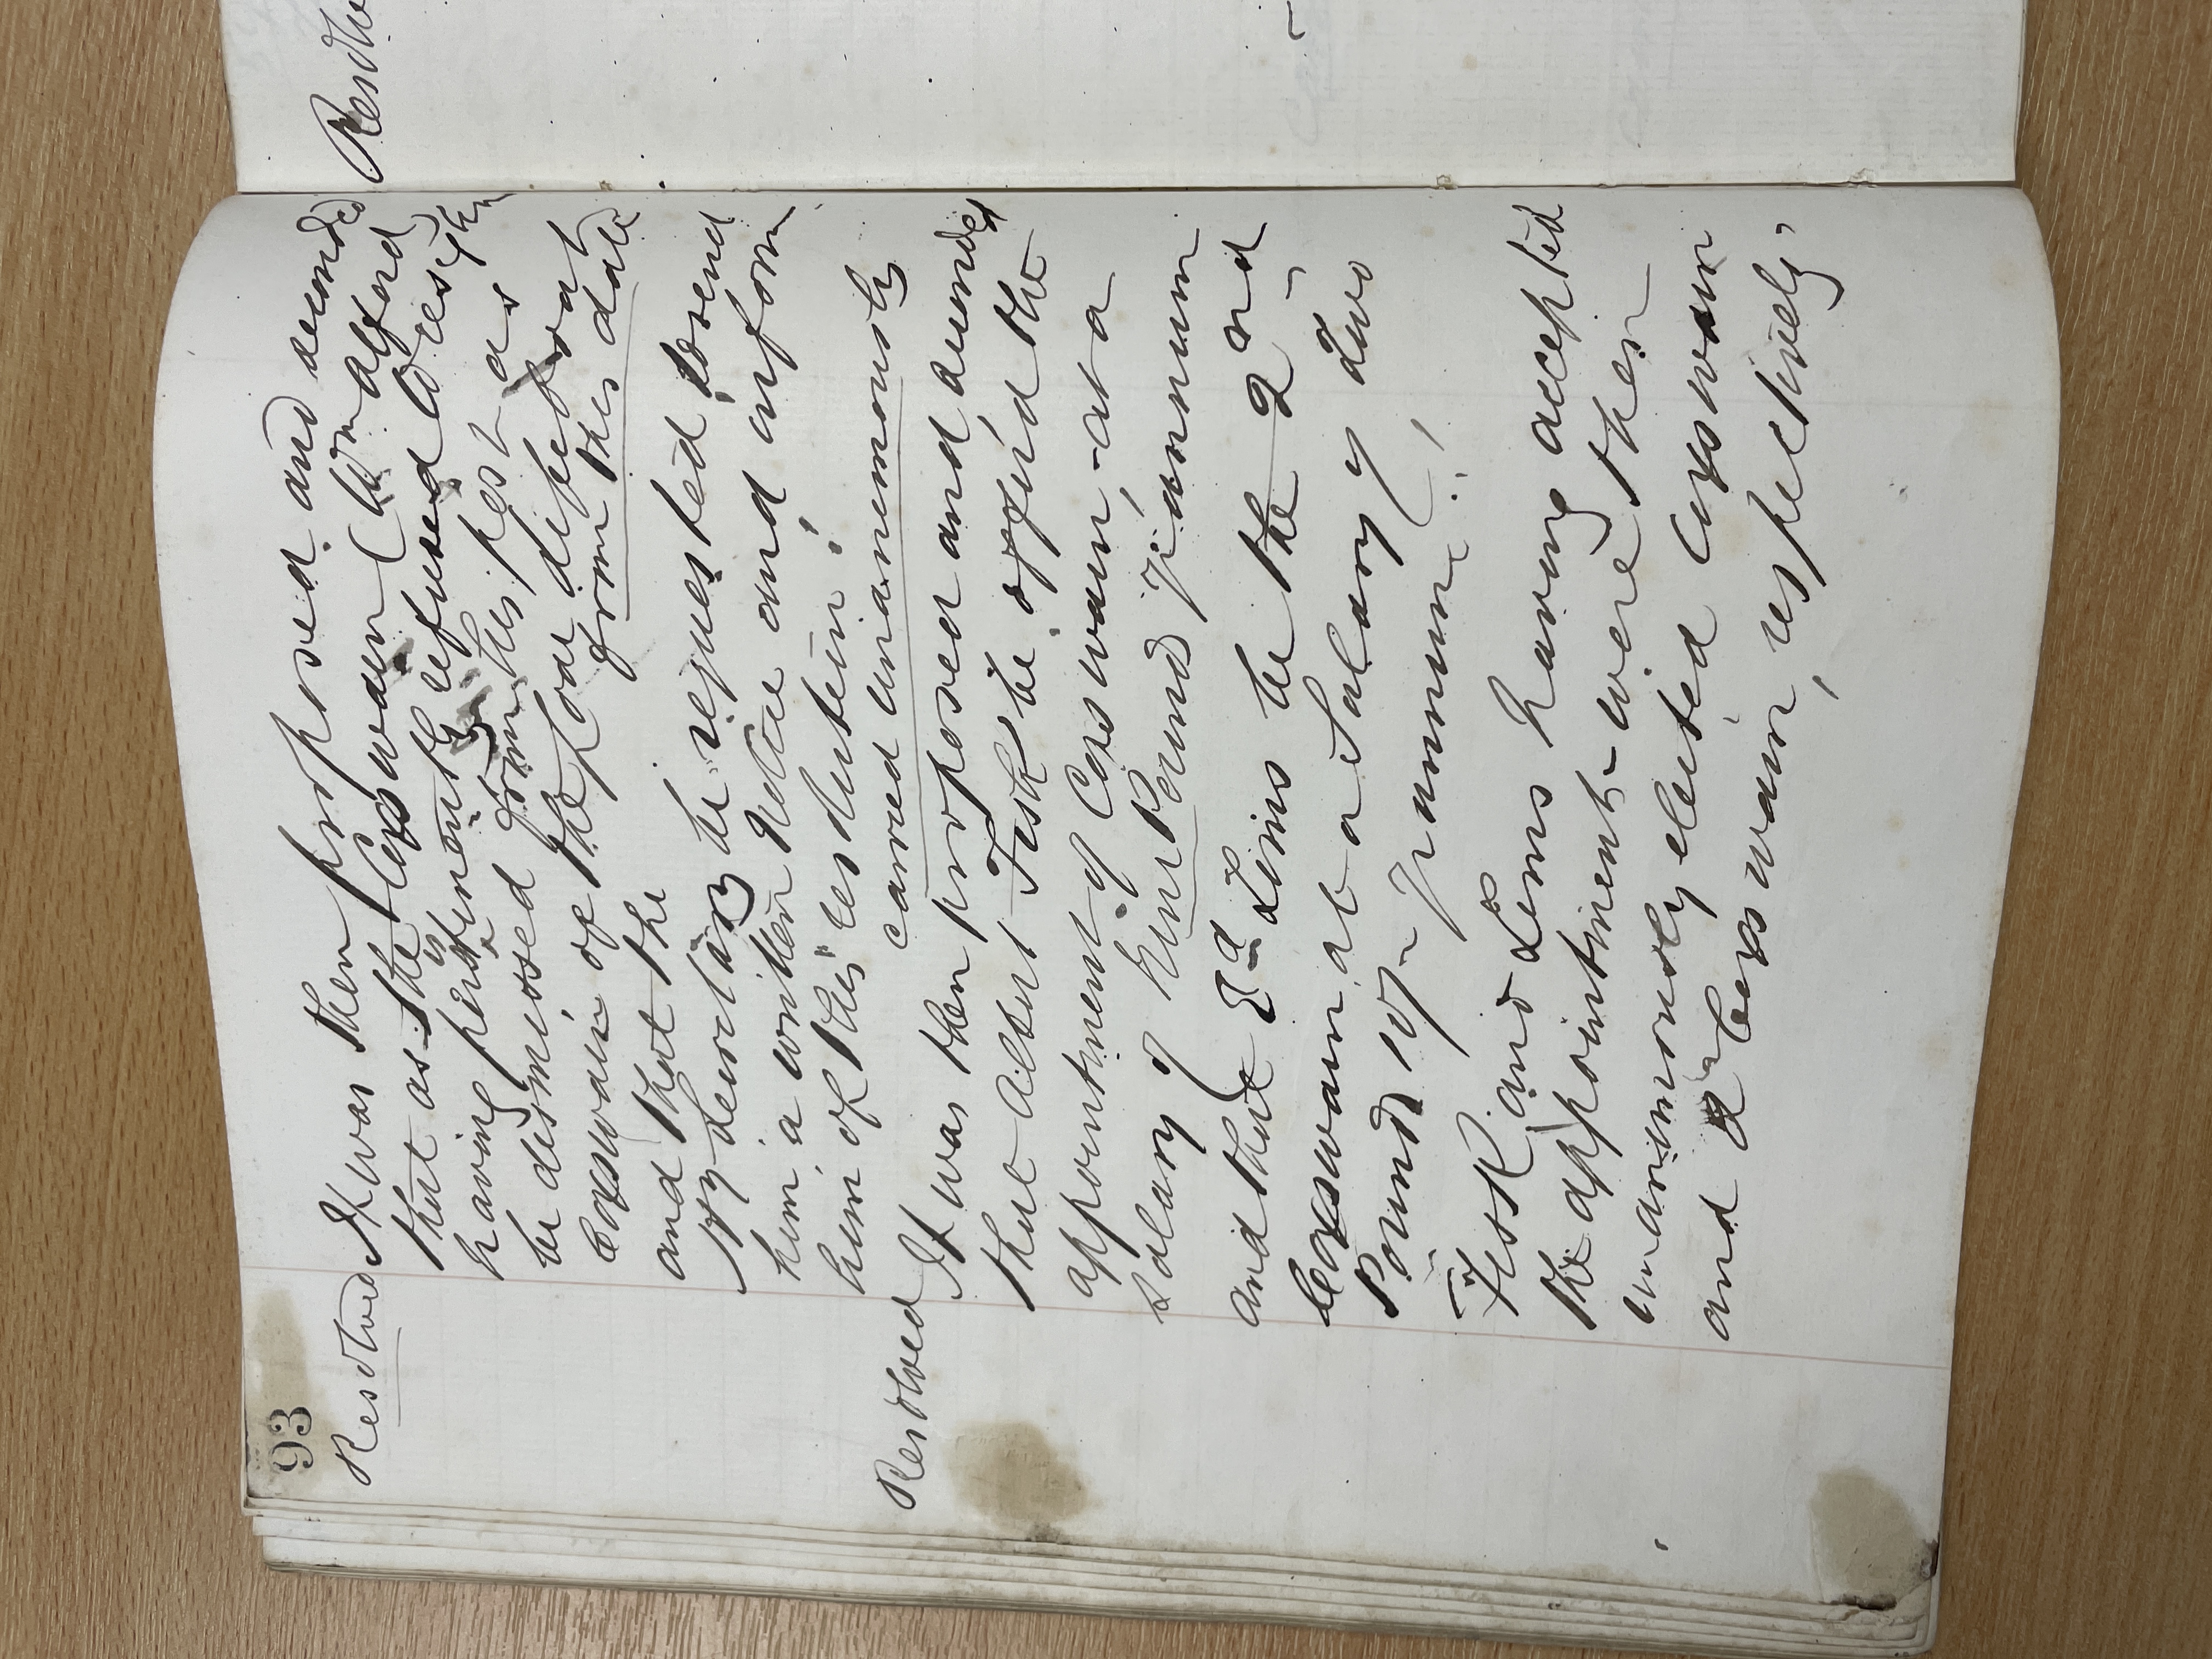 93
Resolved It was then proposed and seconded
that as the Coxswain (Wm Alford)
having persistently refused to resign
be dismissed from his post as
Coxswain of the Lifeboat
from this date
and that the
Secretary be requested to send
him a written Notice and inform
him of this resolution!
carried unanimously
Resolved It was then proposed and seconded
that Albert Fisk be offered the
appointment of Coxswain, at a
salary of Four Pounds pr annum
and that Ed Lins be the 2nd
Coxswain at a Salary of Two
Pounds 10/- pr annum!
Fisk and Lins having accepted
the appointment - were then
unanimously elected Coxswain
and 2n Coxswain, respectively,
Resolve